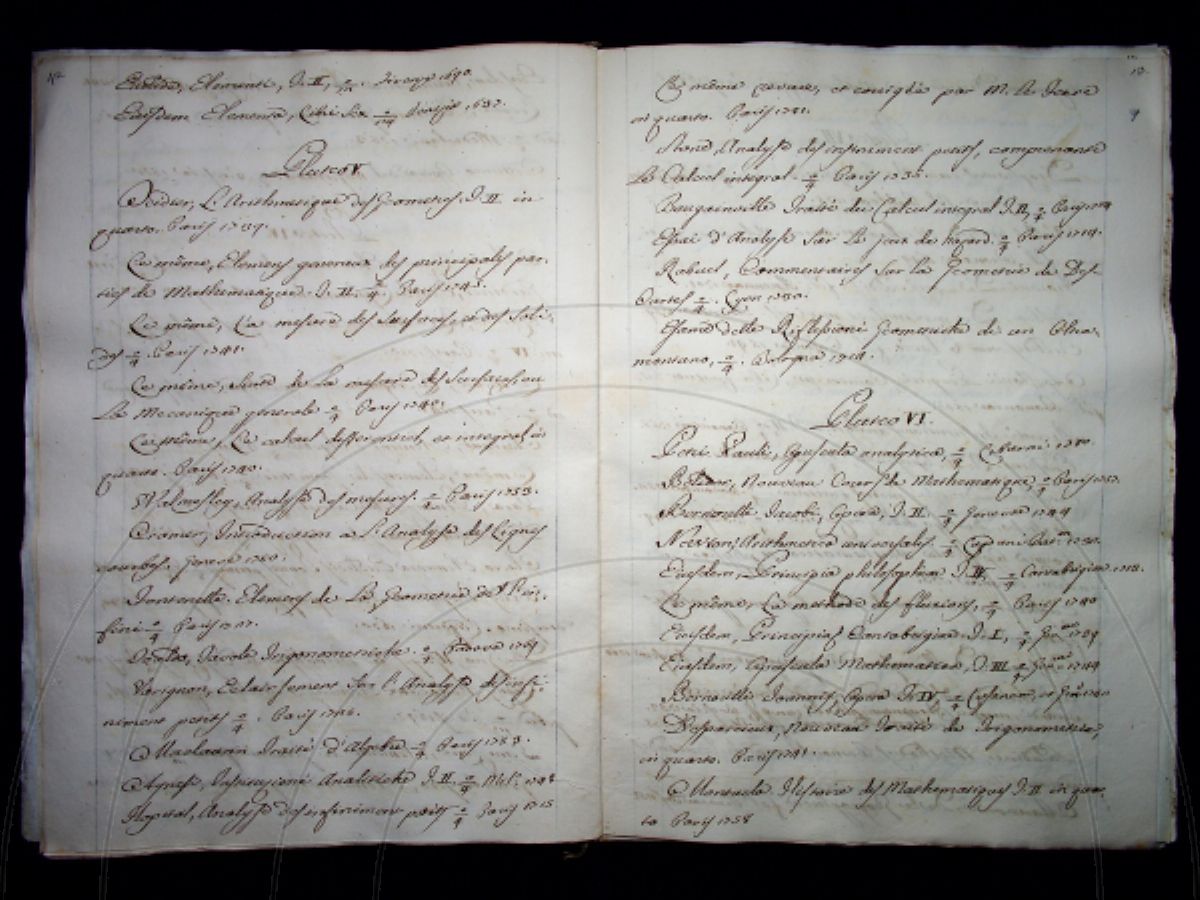 Euclide, Elementi, T. II, in 12. Firenze 1690.
Eiusdem Elementa, Libri Sex in 24 1637.
Pluteo V.
Deidier, L'Arithmetique des Geometres. T. II. in
quarto. Paris 1739.
Le même, Elemens generaux des principales par-
ties de Mathematique. T. II. in 4. Paris 1745.
Le même, La mesure des Surfaces, et des Soli-
des in 4. Paris 1740.
Le même, Suite de la mesure des Surfaces, ou
La Mecanique generale in 4 Paris 1740.
Le même, Le calcul differentiel, et integral, in
quarto. Paris 1740.
Walmesley, Analyse des mesures. in 4 Paris 1753.
Cramer, Introduction a l'Analyse des Lignes
courbes. Geneve 1750.
Fontenelle. Elemens de la Geometrie de l'In-
fini in 4 Paris 1727.
Tavole Trigonometriche. in 4 Padova 1769
Varignon, Eclaircissemens sur l'Analyse des infi-
niment petits in 4. Paris 1725.
Maclaurin Traité d'Algebre in 4 Paris 1753.
Agnesi, Instituzioni Analitiche T. II. in 4 Mil. 1748
Hopital, Analyse des infiniment petits in 4 Paris 1715
12
Le même et par M. le
in quarto. Paris 1781.
Stone, Analyse des infiniment petits, comprenante
Le Calcul integral. in 4 Paris 1735.
Bougainville Traité du Calcul integral T. II, in 4 Paris 1754
Essai d'Analyse sur le jeux de hazard. in 4 Paris 1714.
Rabuel, Commentaires sur la Geometrie de Des-
Cartes in 4. Lyon 1730.
Esame delle Riflessioni Geometriche di un Oltra-
montano, in 4. Bologna 1714.
Pluteo VI.
Petri Pauli, Opuscula analytica, in 4 Liburni. 1780
Belidor, Nouveau Cours de Mathematique, in 4 Paris 1757.
Bernoulli Jacobi, Opera, T. II. in 4 Genevae 1744
Newton, Arithmetica universalis. in 4 Bat. 1732.
Eiusdem, Principia philosophiae T. in 4 Cantabrigiae 1713.
Le même, La methode des fluxions, in 4 Paris 1740
Eiusdem, Principia Cantabrigiae. T. I, in 4 1739
Eiusdem, Opuscula Mathematica, T. III in 4 1744
Bernoulli Joannis, Opera T. IV in 4 Lausannae, et
Desparcieux, Nouveau Traité de Trigonometrie,
in quarto. Paris 1741.
Montucla Histoire des Mathematiques T. II in quar-
to Paris 1758